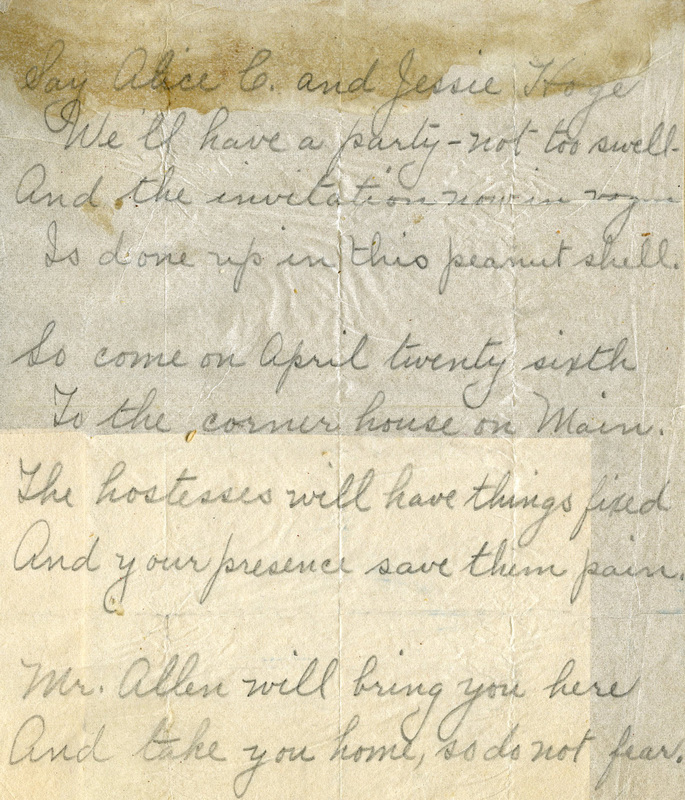 Say Alice C. and Jessie Hoge
We'll have a party - not too swell -
And the invitation now in vogue
Is done up in this peanut shell.
So come on April twenty sixth
To the corner house on Main.
The hostesses will have things fixed
And your presence save them pain.
Mr. Allen will bring you here
And take you home, so do not fear.